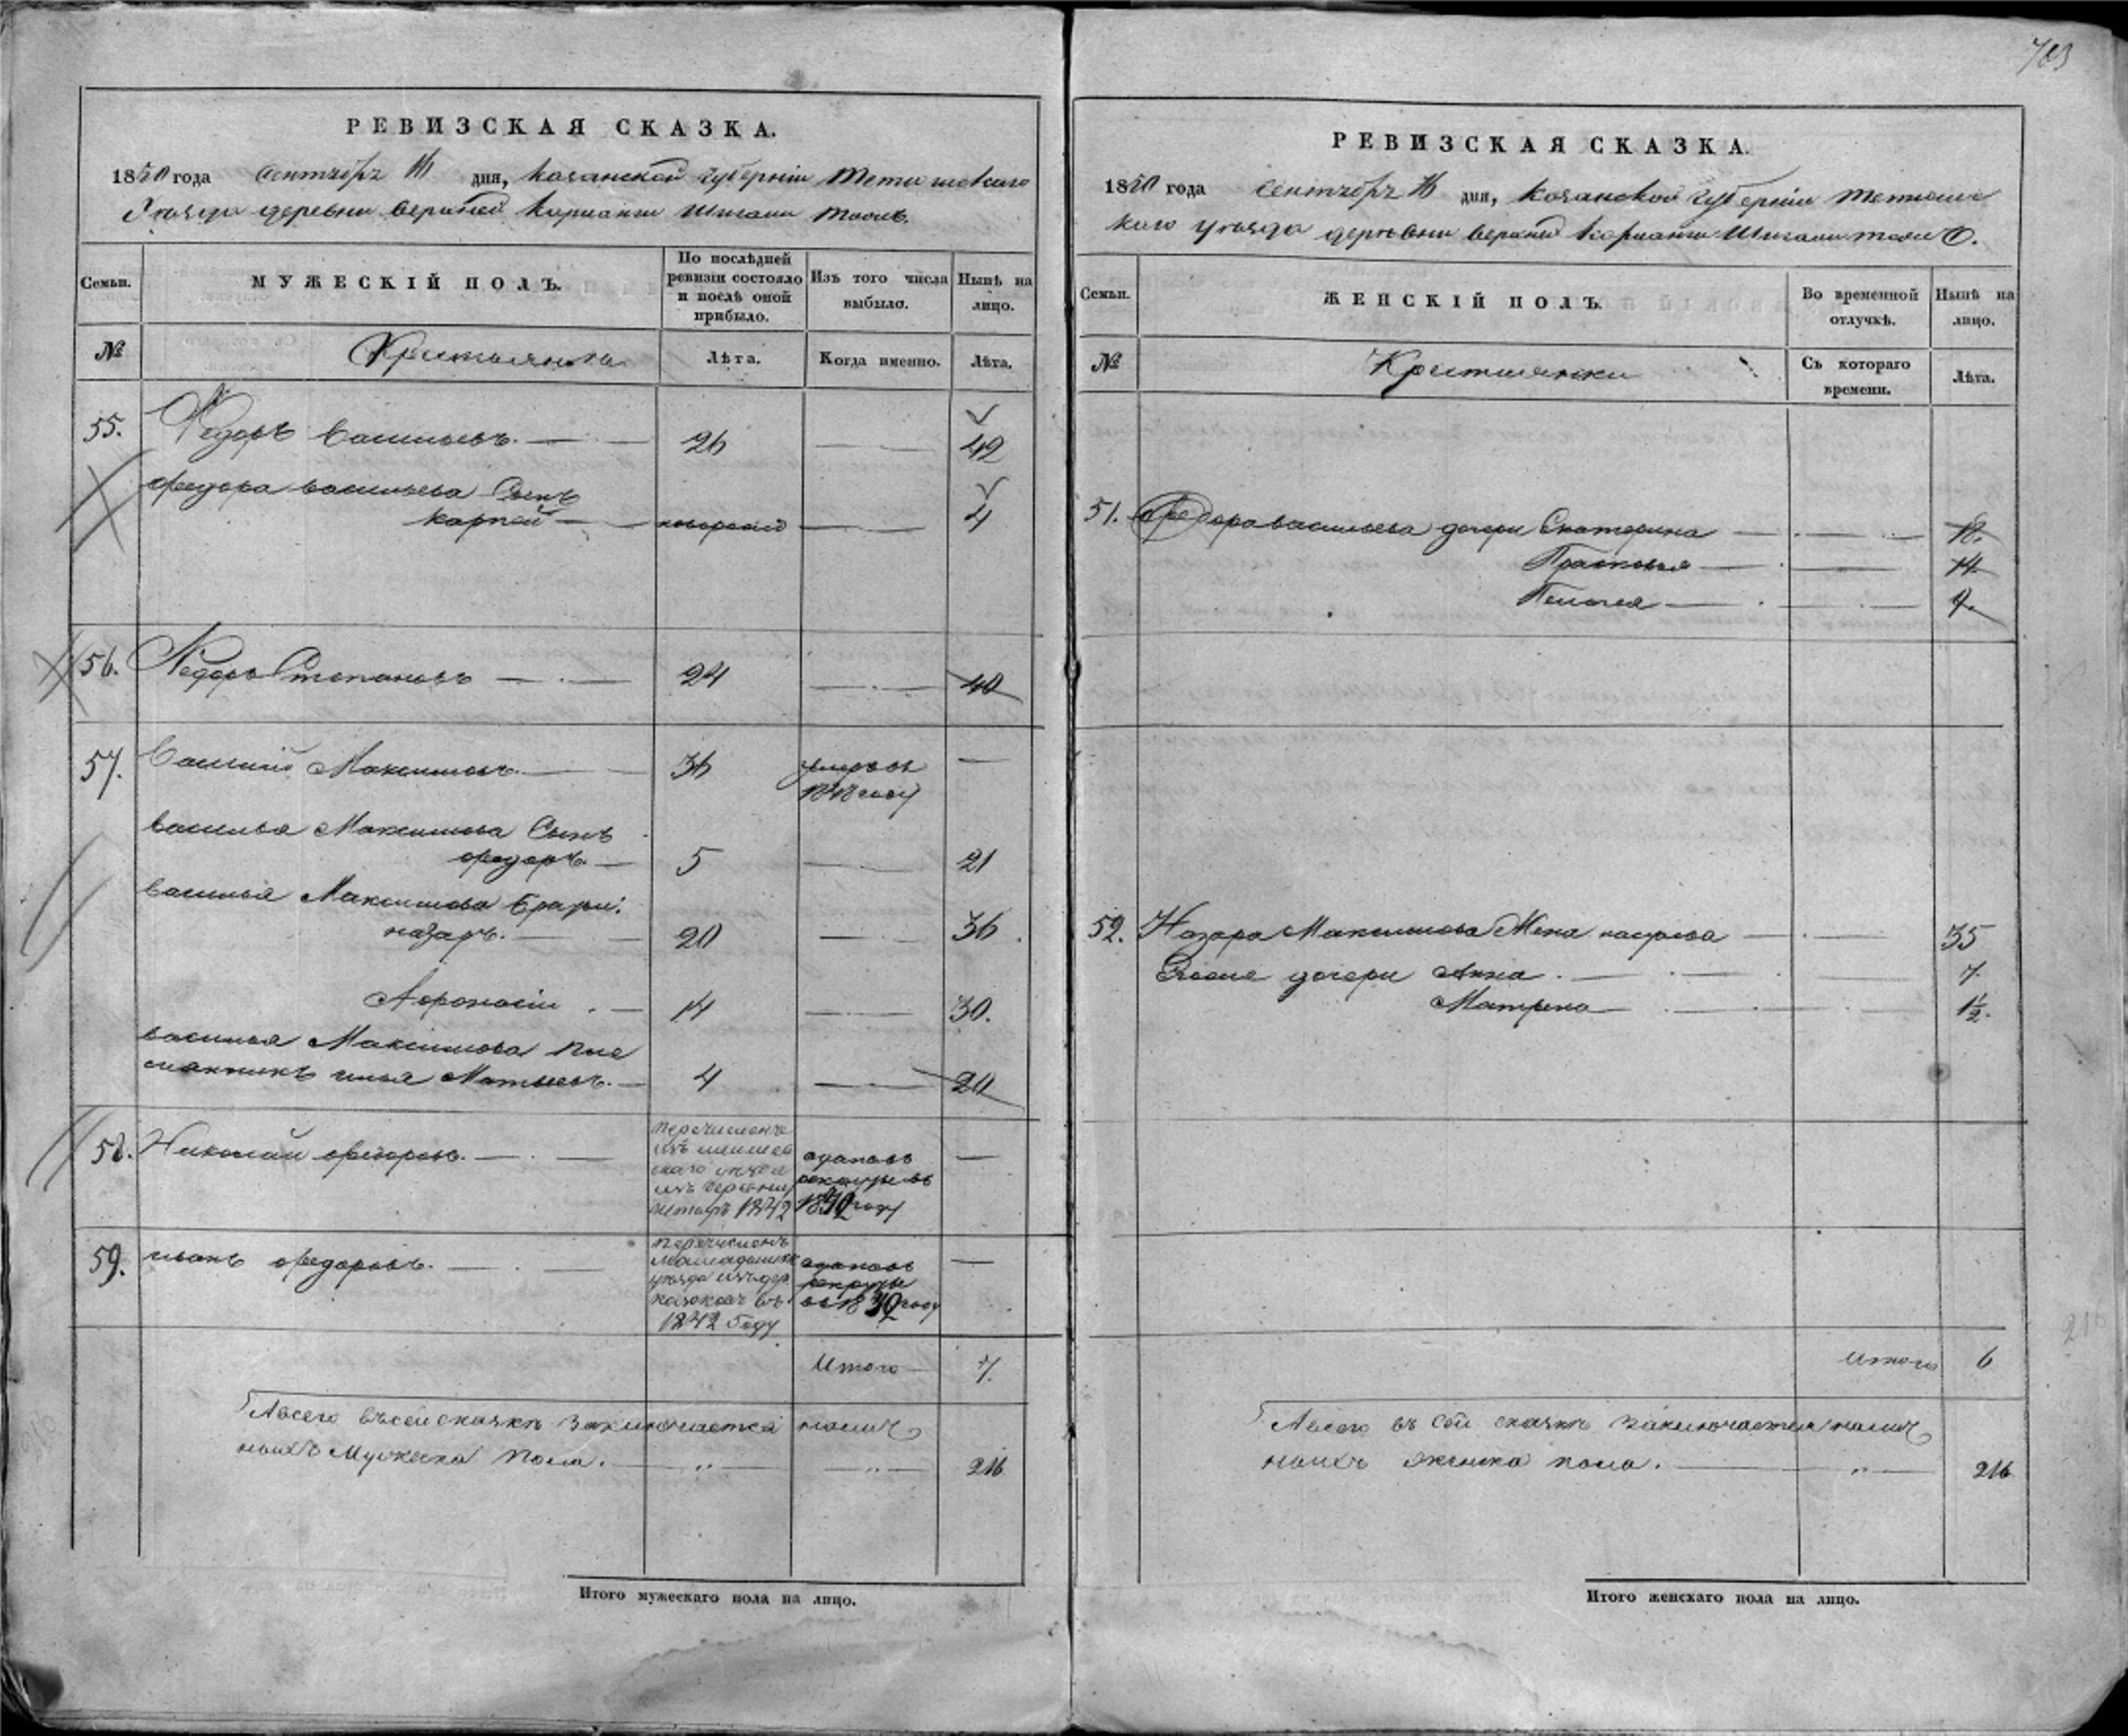 703
РЕВИЗСКАЯ СКАЗКА.
1850 года Сентября 16 дня, Казанской губерніи Тетюшскаго
Уѣзда деревни верхней
МУЖЕСКІЙ ПОЛЪ.
Семьи.
По послѣдней ревизіи состояло и послѣ оной прибыло.
Изъ того числа выбыло.
Нынѣ на лицо.
№
Крестьянъ
Лѣта.
Когда именно.
Лѣта.
55. Федоръ Васильевъ. 26 42
Федора васильева Сынъ
карпей 4
56. Федоръ Степановъ 24 40
57. Василий Максимовъ. 36 умеръ въ
1848 году
василья Максимова Сынъ
федоръ. 5 21
василья Максимова Братья:
назаръ. 20 36.
Афонасiи. 14 30.
василья Максимова пле
мянникъ илья Матвеевъ. 4 20
58. Николаи федоровъ.
перечисленъ
изъ
скаго уезда
изъ деревни
1842
отданъ въ
рекруты въ
году
59. иванъ федоровъ.
перечисленъ
уѣзда изъ дер
въ
1842 году
отданъ въ
рекруты
году
Итого 7.
А всего въ сеи сказкѣ заключается налич
ныхъ Мужеска пола. 216
Итого мужескаго пола на лицо.
РЕВИЗСКАЯ СКАЗКА.
1850 года Сентября 16 дня, Казанской губерніи Тетюшс
каго уѣзда деревни верхней
Семьи.
ЖЕНСКІЙ ПОЛЪ.
Во временной отлучкѣ.
Нынѣ на лицо.
№
Крестьянки
Съ котораго времени.
Лѣта.
51. Федора васильева дочери Екатерина 18.
Прасковья 14
Пелагея 9.
52. Назара Максимова Жена 35
дочери Анна. 7
Матрена 1½.
Итого 6
А всего въ сеи сказкѣ заключается налич
ныхъ женска пола. 216
Итого женскаго пола на лицо.